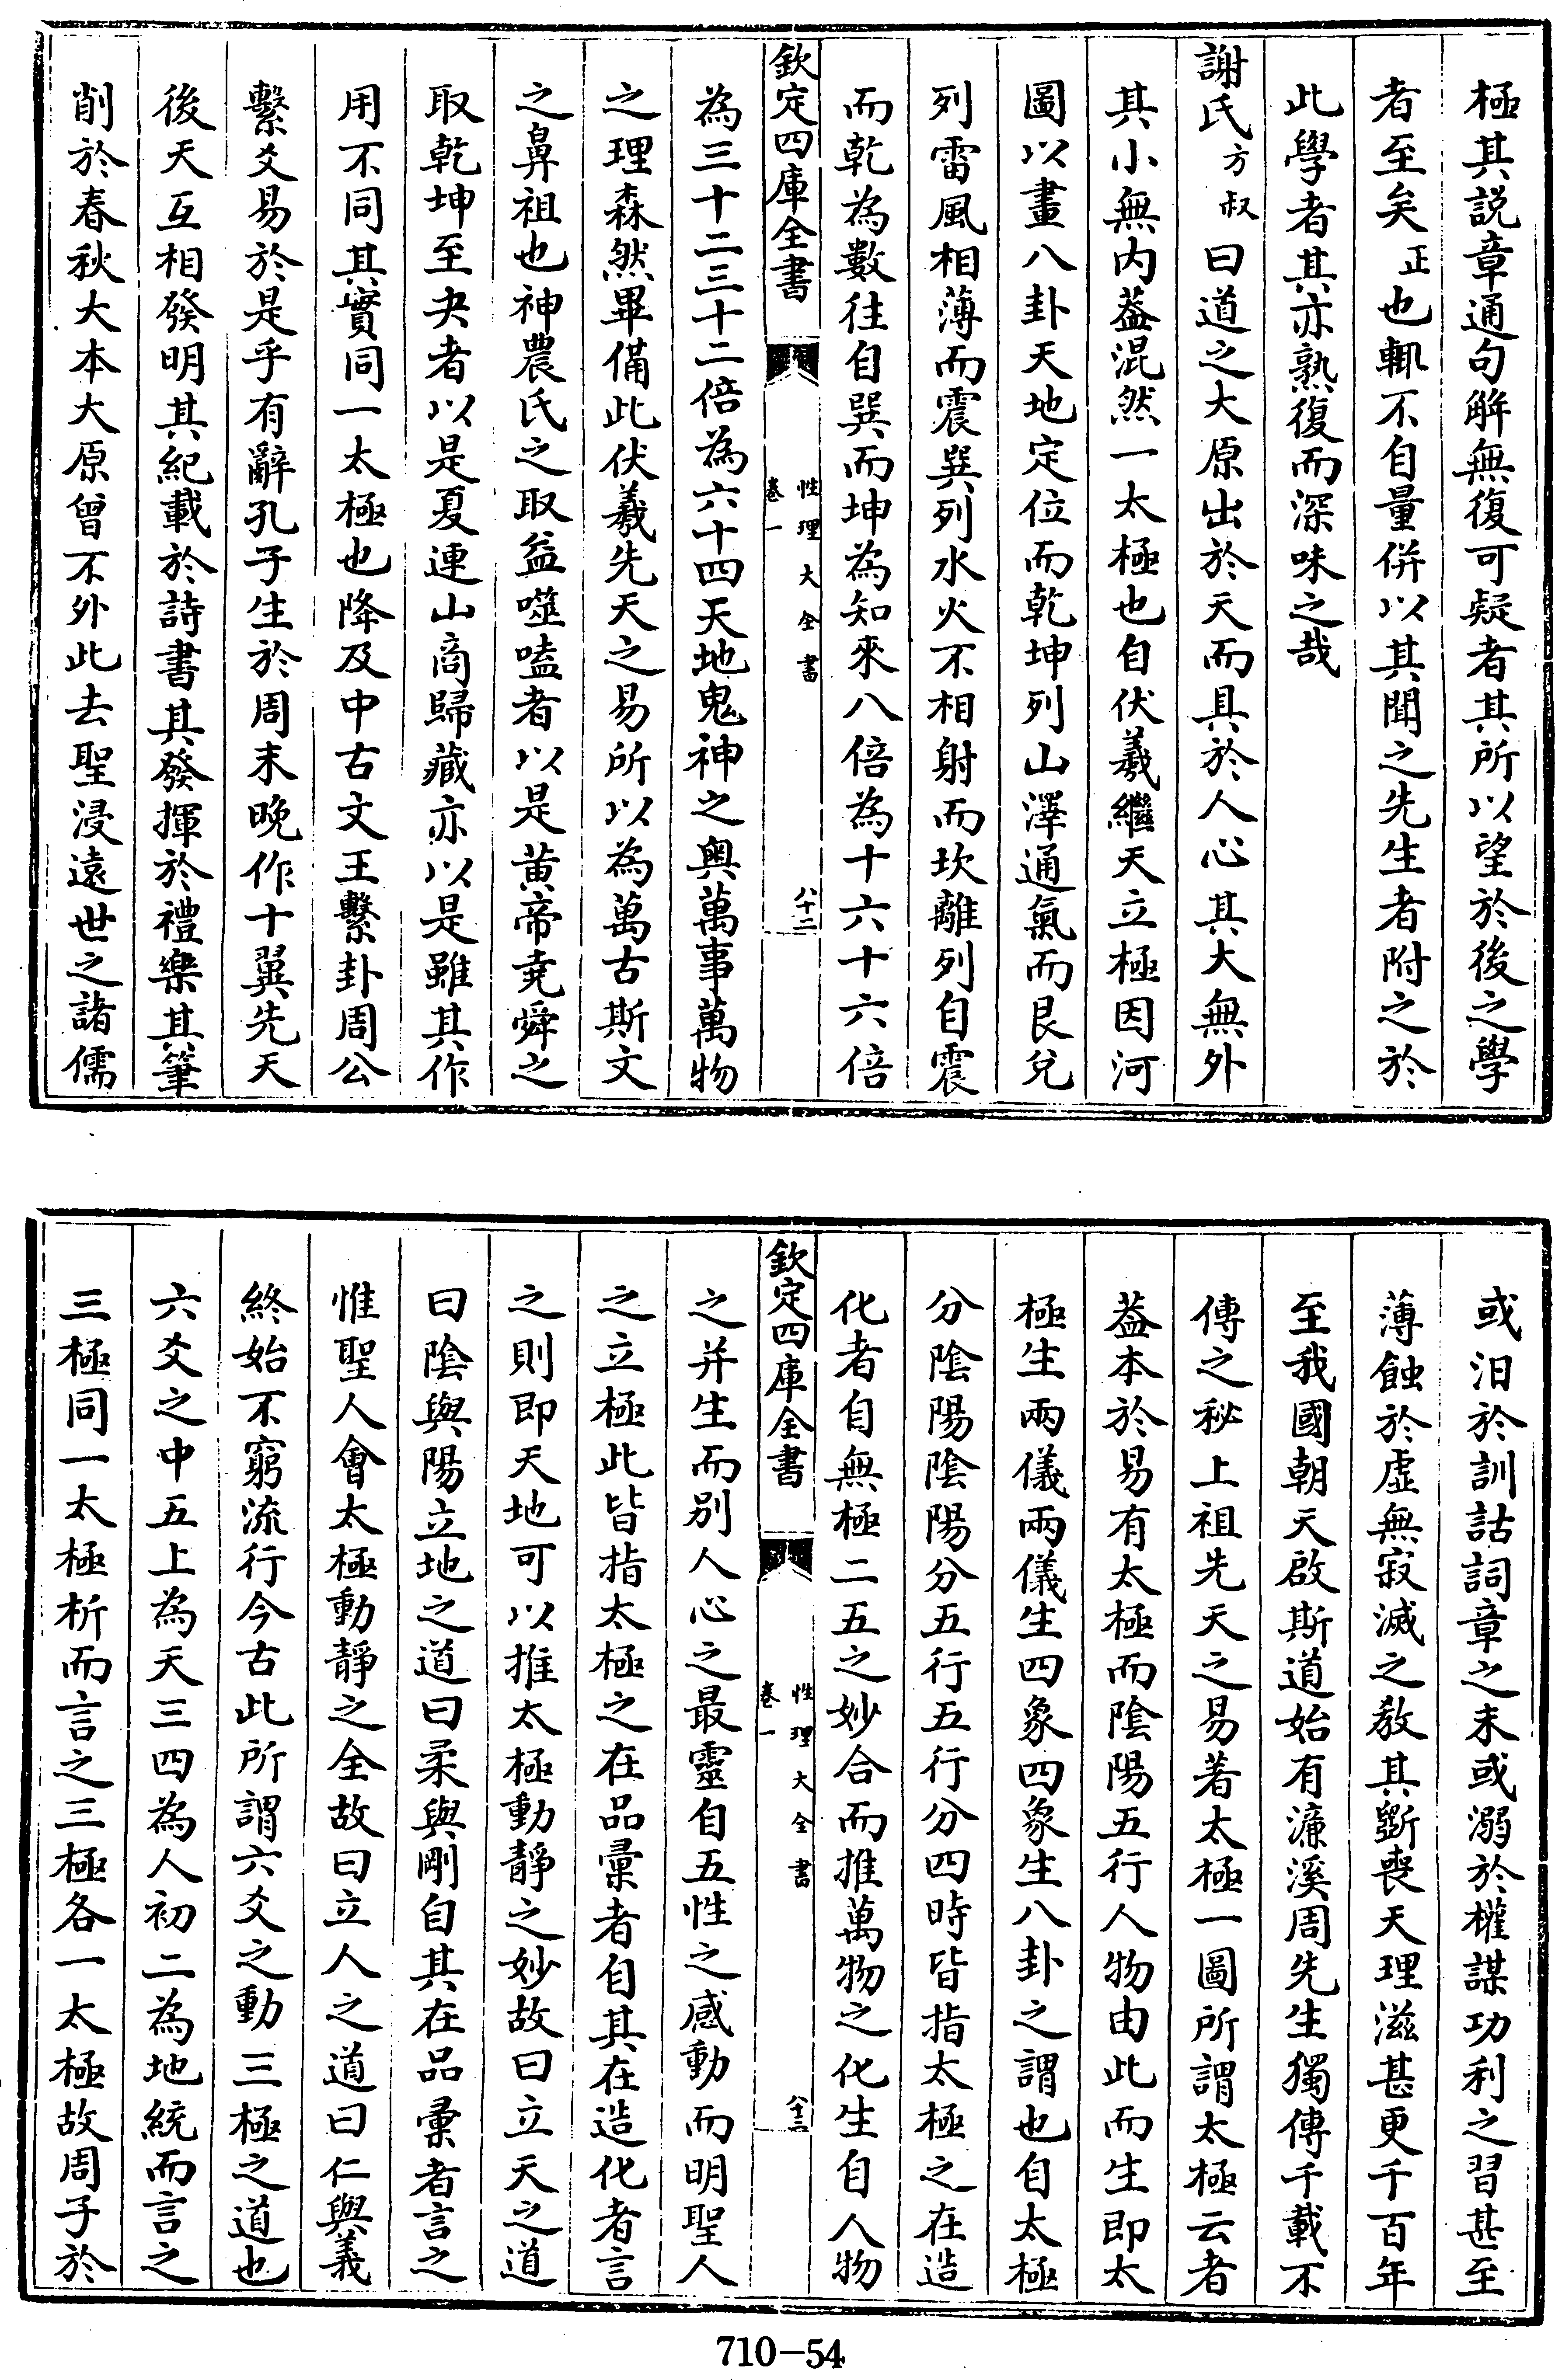 極其説章通句解無復可疑者其所以望於後之學
者至矣正也輒不自量併以其聞之先生者附之於
此學者其亦熟復而深味之哉
謝氏方叔曰道之大原出於天而具於人心其大無外
其小無内葢混然一太極也自伏羲繼天立極因河
圖以畫八卦天地定位而乾坤列山澤通氣而艮兌
列雷風相薄而震巽列水火不相射而坎離列自震
而乾為數往自巽而坤為知來八倍為十六十六倍
欽定四庫全書
性理大全書
卷一
八十二
為三十二三十二倍為六十四天地鬼神之奥萬事萬物
之理森然畢備此伏羲先天之易所以為萬古斯文
之鼻祖也神農氏之取益噬嗑者以是黄帝堯舜之
取乾坤至夬者以是夏連山商歸藏亦以是雖其作
用不同其實同一太極也降及中古文王繫卦周公
繫爻易於是乎有辭孔子生於周末晚作十翼先天
後天互相發明其紀載於詩書其發揮於禮樂其筆
削於春秋大本大原曾不外此去聖浸遠世之諸儒
或汨於訓詁詞章之末或溺於權謀功利之習甚至
薄蝕於虚無寂滅之教其斵喪天理滋甚更千百年
至我國朝天啟斯道始有濓溪周先生獨傳千載不
傳之秘上祖先天之易著太極一圖所謂太極云者
葢本於易有太極而陰陽五行人物由此而生即太
極生兩儀兩儀生四象四象生八卦之謂也自太極
分陰陽陰陽分五行五行分四時皆指太極之在造
化者自無極二五之妙合而推萬物之化生自人物
欽定四庫全書
性理大全書
卷一
八十三
之并生而别人心之最靈自五性之感動而明聖人
之立極此皆指太極之在品彚者自其在造化者言
之則即天地可以推太極動靜之妙故曰立天之道
曰陰與陽立地之道曰柔與剛自其在品彚者言之
惟聖人會太極動靜之全故曰立人之道曰仁與義
終始不窮流行今古此所謂六爻之動三極之道也
六爻之中五上為天三四為人初二為地統而言之
三極同一太極析而言之三極各一太極故周子於
710-54